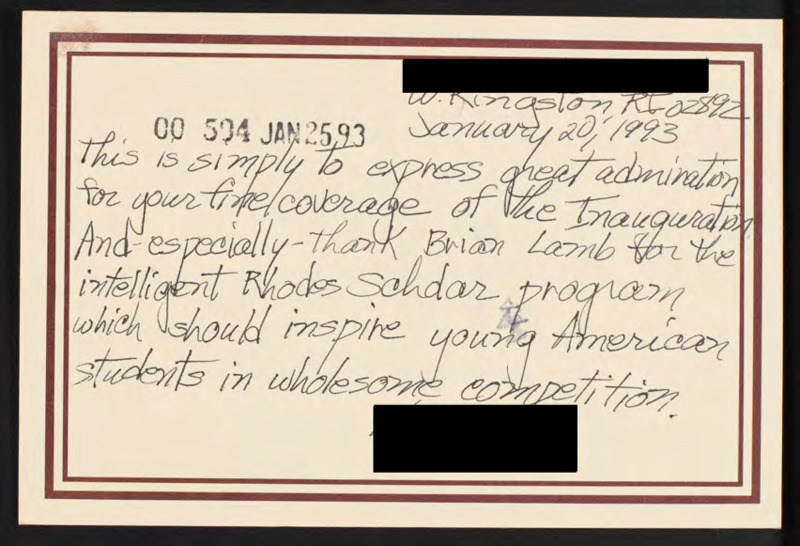 W. Kingston RI 02892
00 504 JAN 25,93
January 20, 1993
This is simply to express great admiration
for your fine coverage of the Inauguration.
And-especially-thank Brian Lamb for the
intelligent Rhodes Scholar program
which should inspire young American
students in wholesome competition.